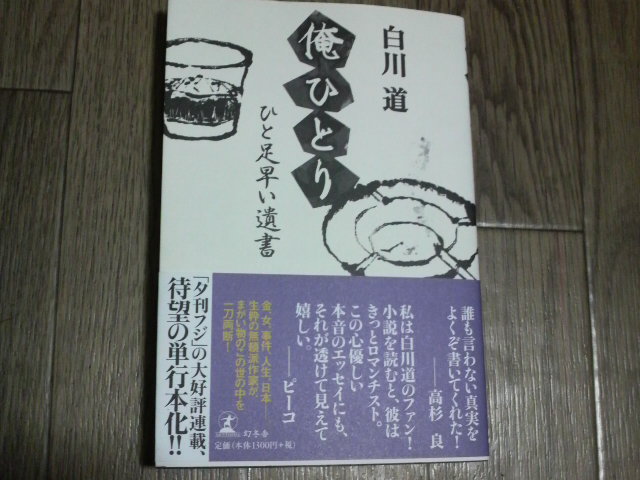 白川 道
俺ひとり
ひと足早い遺書
誰も言わない真実を
よくぞ書いてくれた!
――高杉 良
私は白川道のファン!
小説を読むと、彼は
きっとロマンチスト。
この心優しい
本音のエッセイにも、
それが透けて見えて
嬉しい。
――ピーコ
金、女、事件、人生、日本――
生粋の無頼派作家が、
まがい物のこの世の中を
一刀両断!
「夕刊フジ」の大好評連載、
待望の単行本化!!
幻冬舎
定価(本体1300円+税)